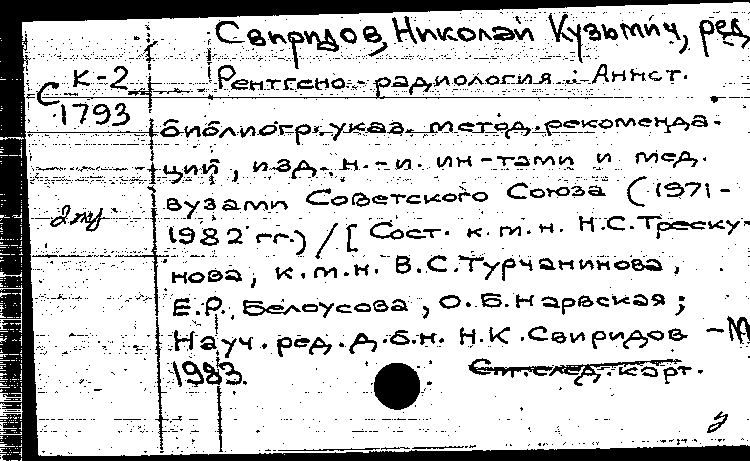 Свиридов, Николай Кузьмич, ред
К-2
С 1793
Рентгено-радиология: Аннот.
библиогр. указ. метод. рекоменда-
ций, изд. н.-и. ин-тами и мед.
вузами Советского Союза (1971-
1982 гг.) / [Сост. к.м.н. Н.С. Треску-
нова, к.м.н. В.С. Турчанинова,
Е.Р. Белоусова, О.Б. Нарвская;
Науч. ред. д.б.н. Н.К. Свиридов - М
1983.
См. след. карт.